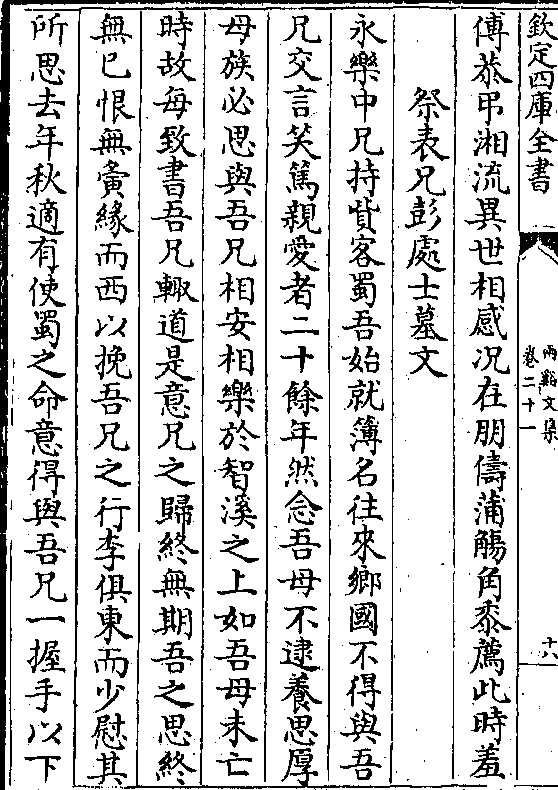 欽定四庫全書
兩谿文集
卷二十一
十六
傅恭弔湘流異世相感况在朋儔蒲觴角黍薦此時羞
祭表兄彭處士墓文
永樂中兄持貲客蜀吾始就簿名往來鄉國不得與吾
兄交言笑篤親愛者二十餘年然念吾母不逮養思厚
母族必思與吾兄相安相樂於智溪之上如吾母未亡
時故每致書吾兄輙道是意兄之歸終無期吾之思終
無已恨無夤緣而西以挽吾兄之行李俱東而少慰其
所思去年秋適有使蜀之命意得與吾兄一握手以下